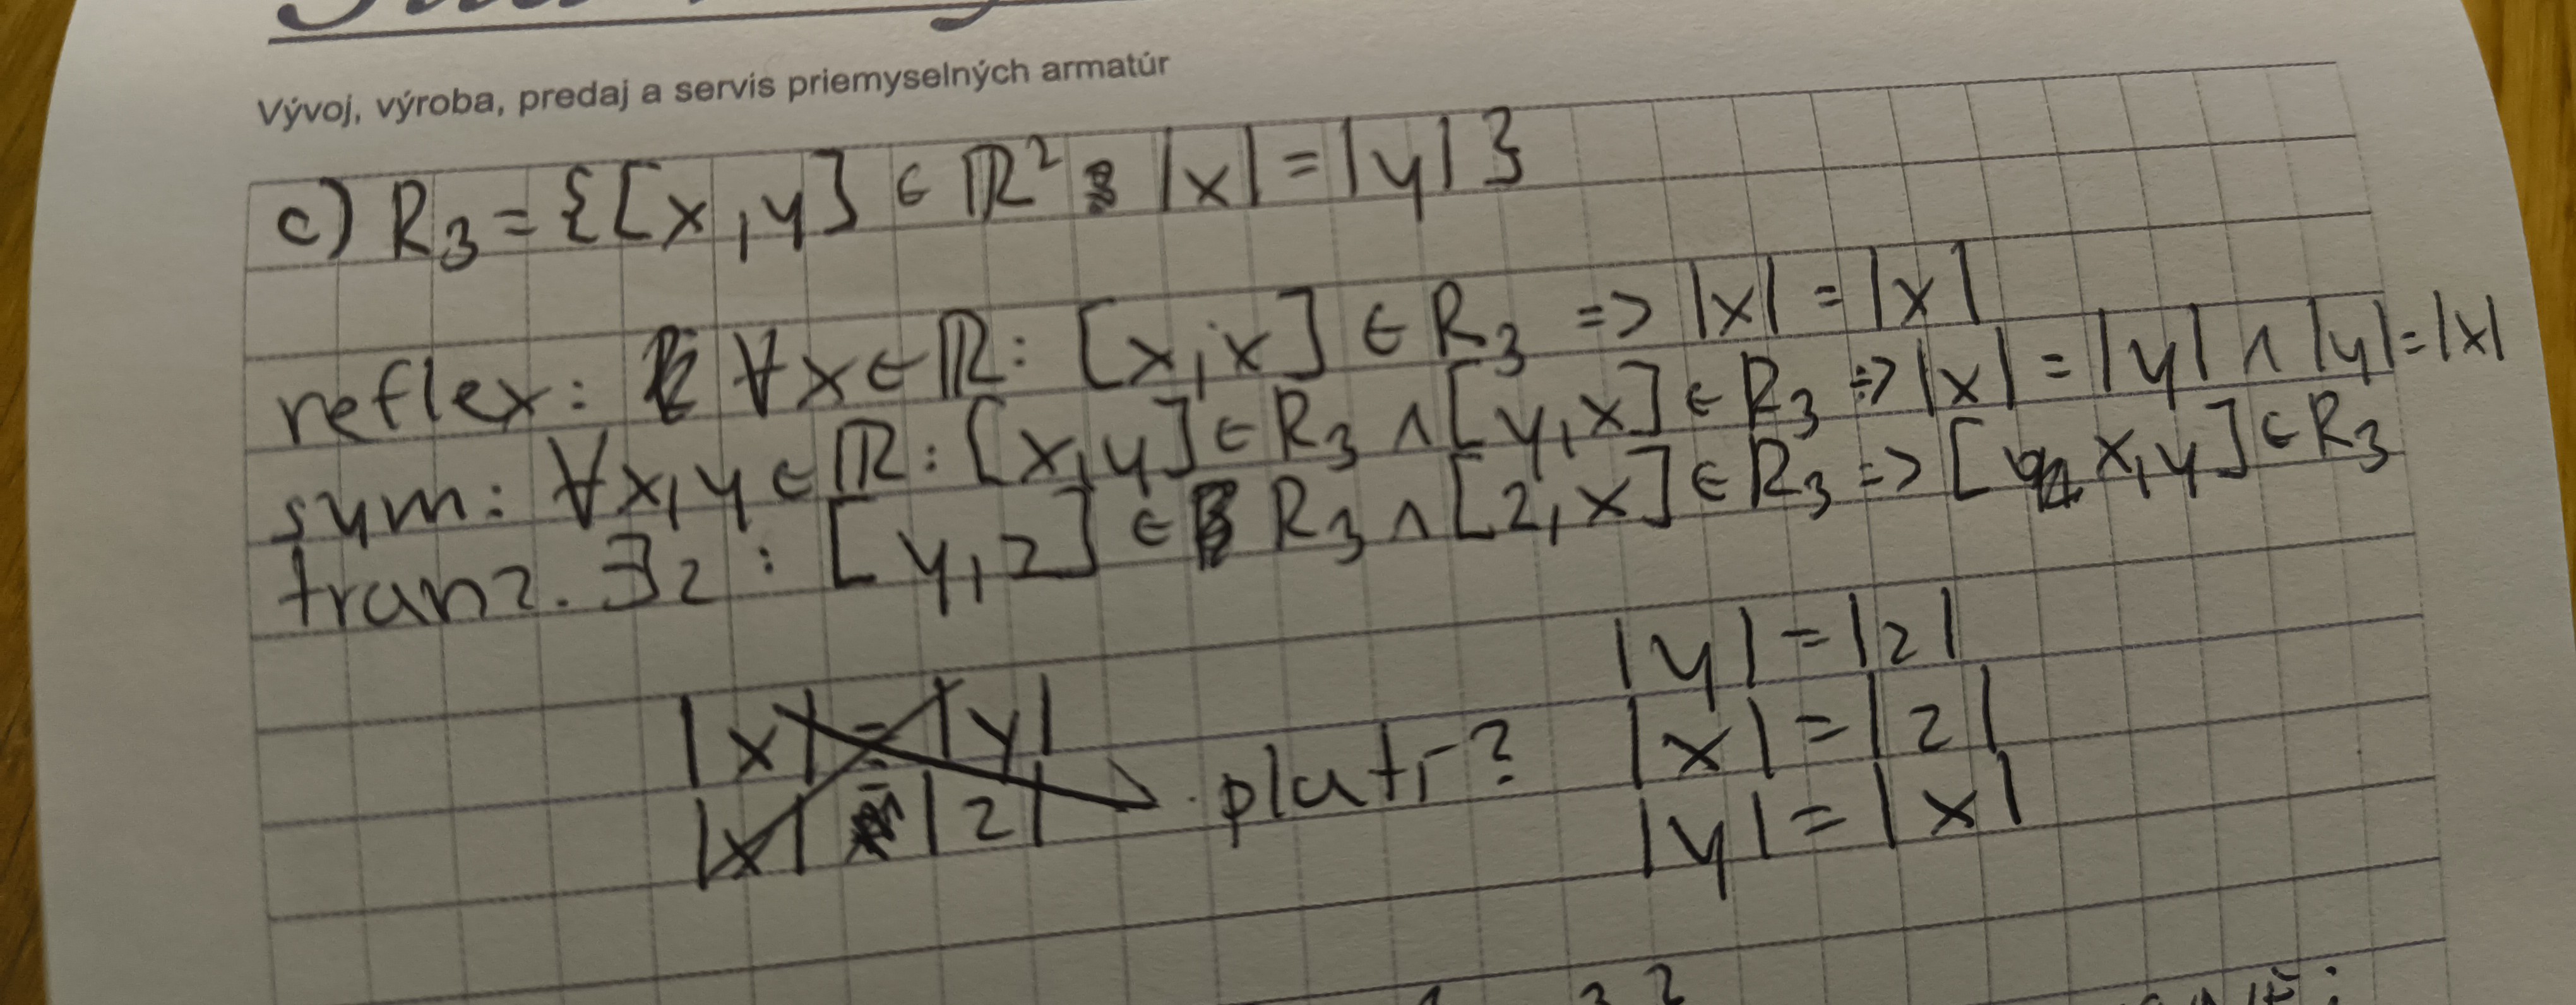 Vývoj, výroba, predaj a servis priemyselných armatúr
c) R₃ = {[x,y] ∈ ℝ² : |x| = |y|}
reflex: ∀x ∈ ℝ: [x,x] ∈ R₃ => |x| = |x|
sym: ∀x,y ∈ ℝ: [x,y] ∈ R₃ ∧ [y,x] ∈ R₃ => |x| = |y| ∧ |y| = |x|
tranz. ∃z : [y,z] ∈ R₃ ∧ [z,x] ∈ R₃ => [x,y] ∈ R₃
|y| = |z|
|x| = |y|
platí? |x| = |z|
|x| = |z|
|y| = |x|